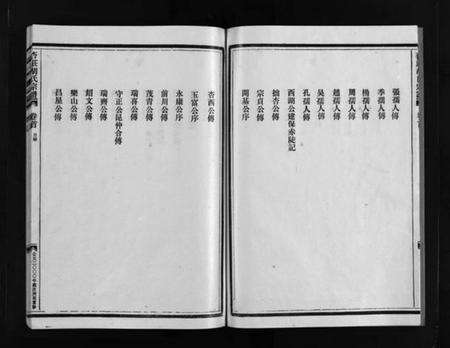 張孺人傳
李孺人傳
楊孺人傳
周孺人傳
趙孺人傳
吳孺人傳
孔孺人傳
西園公建保赤陡記
拙杏公傳
宗貞公傳
開基公序
杏西公傳
玉富公序
永康公序
前川公傳
茂青公傳
瑞喜公傳
守正公昆仲合傳
瑞齊公傳
紹文公傳
樂山公傳
昌星公傳
卷首